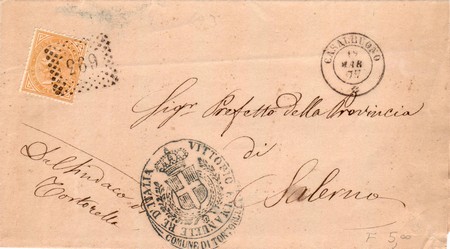 CASALBUONO
MAR
77
Sigr Prefetto della Provincia
di
Salerno
Dal Sindaco di
Tortorella
VITTORIO EMANUELE RE D'ITALIA
COMUNE DI TORTORELLA
F 5,00